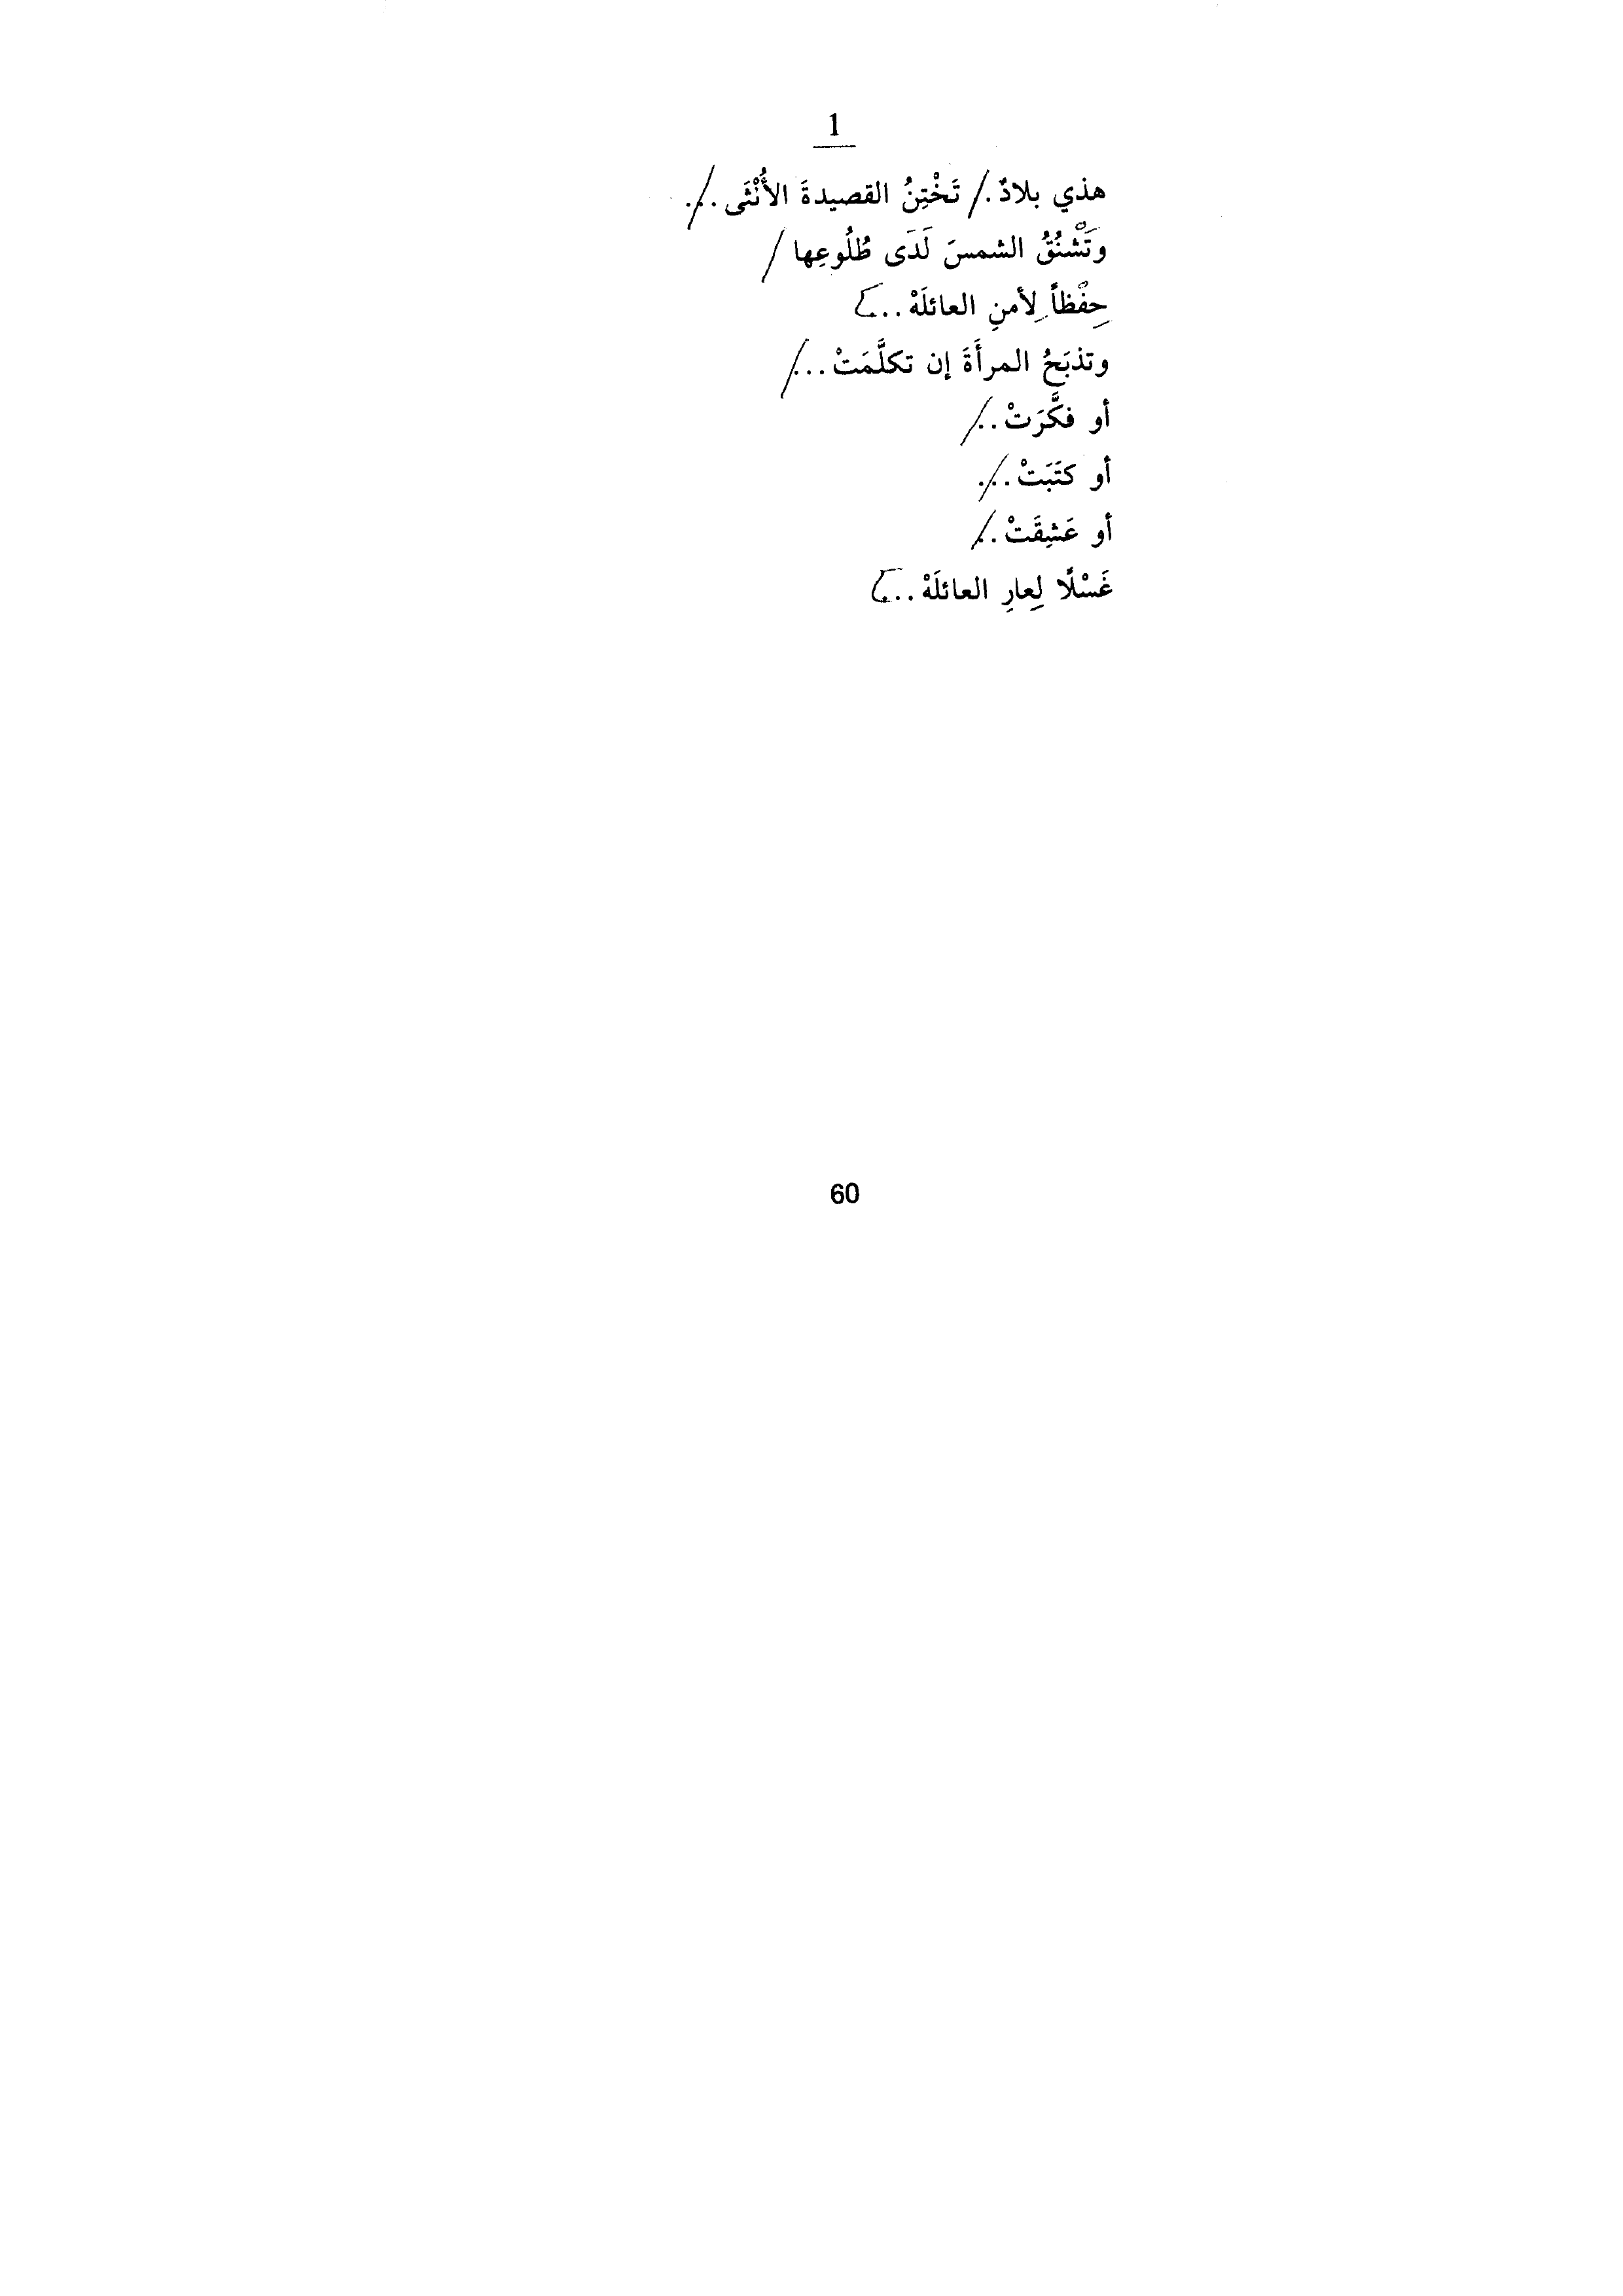 1
هذي بلادٌ ./ تَخْتِنُ القصيدةَ الأُنْثَى ../.
وَتَشْنُقُ الشمسَ لَدَى طُلُوعِها /
حِفْظاً لِأمنِ العائلَةْ . . .
وتذبَحُ المرأَةَ إن تكلَّمَتْ . . ./
أو فكَّرَتْ . ./
أو كتَبَتْ . ./.
أو عَشِقَتْ . ./
غَسْلًا لِعارِ العائلَةْ . . .
60